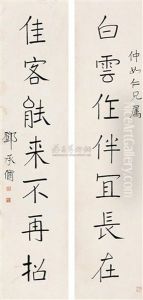 仲如仁兄屬
白雲作伴宜長在
佳客能来不再招
鄧承脩